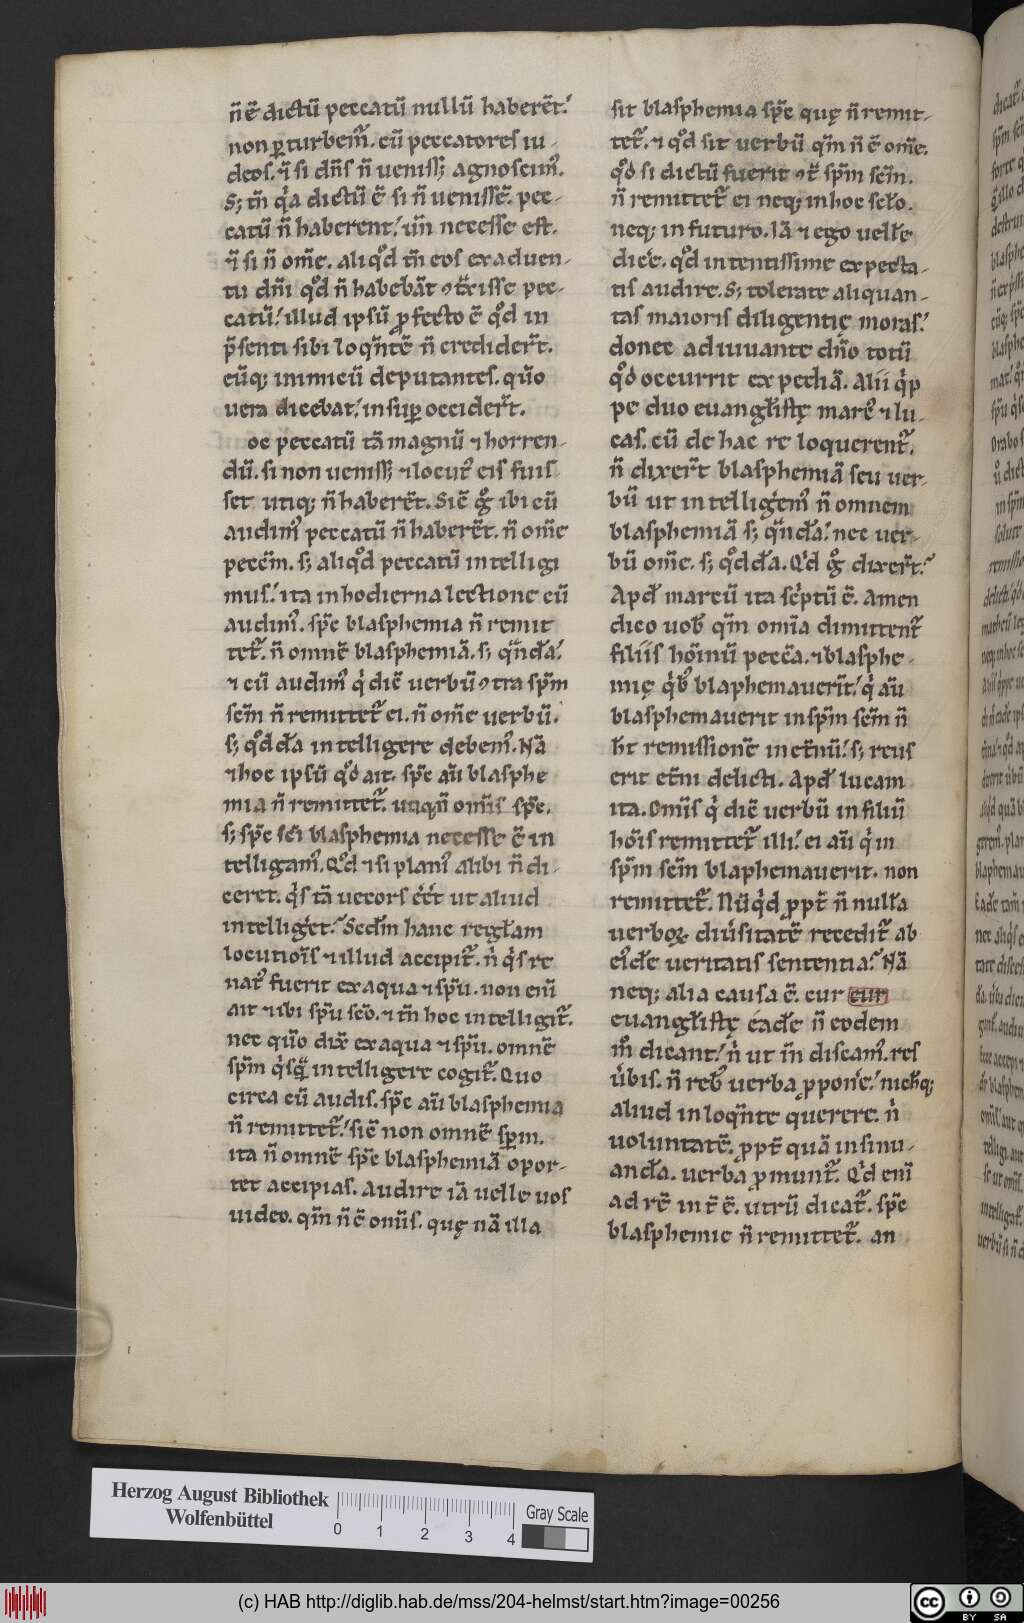 n̄ ē dictū peccatū nullū haberēt.'
non ꝑturbem̄. cū peccatores iu-
deos. ⁊ si dn̄s n̄ ueniss; agnoscim᷒.
S; tn̄ qͥa dictū ē si n̄ uenissē. pec-
catū n̄ haberent.' un̄ necesse est.
⁊ si n̄ om̄e. aliqͦd tn̄ eos ex aduen-
tu dn̄i qͦd n̄ habebāt ꝯt̄xisse pec-
catū.' illud ipsū ꝓfecto ē qͦd in
p̄senti sibi loqn̄tē n̄ credider̄t.
eūq; inimicū deputantes. qūo
uera dicebat.' insuꝑ occider̄t.
oc peccatū tā magnū ⁊ horren-
dū. si non ueniss; ⁊ locut᷒ eis fuis
set utiq; n̄ haberēt. Sic̄ g̊ ibi cū
audim᷒ peccatū n̄ haberēt. n̄ om̄e
peccm̄. s; aliqͦd peccatū intelligi
mus.' ita in hodierna lectione cū
audim᷒. sp̄c blasphemia n̄ remit
tet᷑. n̄ omnē blasphemiā. s; qn̄dā.'
⁊ cū audim᷒ qͥ dic̄ uerbū ꝯtra sp̄m
sc̄m n̄ remittet᷑ ei. n̄ om̄e uerbū.
s; qͦddā intelligere debem᷒. Nā
⁊ hoc ipsū qͦd ait. sp̄c aū blasphe
mia n̄ remittet᷑. utiqn̄ om̄is sp̄c.
s; sp̄c sc̄i blasphemia necesse ē in
telligam᷒. Qͦd ⁊ si plani᷒ alibi n̄ di-
ceret. qͥs tā uecors eēt ut aliud
intelliget.᷑ Secdm̄ hanc regłam
locutiōis ⁊ illud accipit᷑. n̄ qͥs re
nat᷒ fuerit ex aqua ⁊ sp̄u. non enī
ait ⁊ ibi sp̄u sc̄o. ⁊ tn̄ hoc intelligit᷑.
nec qūo dix̄ ex aqua ⁊ sp̄u. omnē
sp̄m qͥsq̄ intelligere cogit᷑. Quo
circa cū audis. sp̄c aū blasphemia
n̄ remittet᷑.' sic̄ non omnē sp̄m.
ita n̄ omnē sp̄c blasphemiā opor-
tet accipias. Audire iā uelle uos
uideo. qm̄ n̄ ē om̄is. quę nā illa
sit blasphemia sp̄c quę n̄ remit-
tet᷑. ⁊ qͦd sit uerbū qm̄ n̄ ē om̄e.
qͦd si dictū fuerit ꝯt̄ sp̄m sc̄m.
n̄ remittet᷑ ei neq; in hoc scło.
neq; in futuro. Iā ⁊ ego uelłe
dic̄e. qͦd intentissime expecta-
tis audire. S; tolerate aliquan-
tas maioris diligentię moras.'
donec adiuuante dn̄o totū
qͦd occurrit expediā. Alii qͥp
pe duo euangłistę marc᷒ ⁊ lu-
cas. cū de hac re loquerent᷑.
n̄ dixer̄t blasphemiā seu uer
bū ut intelligem᷒ n̄ omnem
blasphemiā s; qn̄dā.' nec uer-
bū om̄e. s; qͦddā. Qͥd g̊ dixer̄t.᷑
Apd̄ marcū ita scͥptū ē. Amen
dico uob̄ qm̄ omīa dimittent᷑
filiis hoīnū pecc̄a. ⁊ blasphe-
mię qͥb᷒ blaphemauerīt.' qͥ aū
blasphemauerit in sp̄m sc̄m n̄
h̄t remissionē in et̄nū.' s; reus
erit et̄ni delicti. Apd̄ lucam
ita. Om̄is qͥ dic̄ uerbū in filiū
hoīs remittet᷑ illi.' ei aū qͥ in
sp̄m sc̄m blaphemauerit. non
remittet᷑. Nūqͥd ꝓpt̄ n̄ nułła
uerboꝝ diuͥsitatē recedit᷑ ab
ei᷒dē ueritatis sententia.᷑ Nā
neq; alia causa ē. cur cur
euangłistę eadē n̄ eodem
m̊ dicant.' n̄ ut īn discam᷒. res
uͥbis. n̄ reb᷒ uerba p̱ponͥe.' nichq;
aliud in loqn̄te querere. n̄
uoluntatē. ꝓpt̄ quā insinu-
andā. uerba ꝓmunt᷑. Qͥd enī
ad rē int̄ē. utrū dicat᷑. sp̄c
blasphemie n̄ remittet᷑. an
Herzog August Bibliothek
Wolfenbüttel
0 1 2 3 4
Gray Scale
(c) HAB http://diglib.hab.de/mss/204-helmst/start.htm?image=00256
cc BY SA